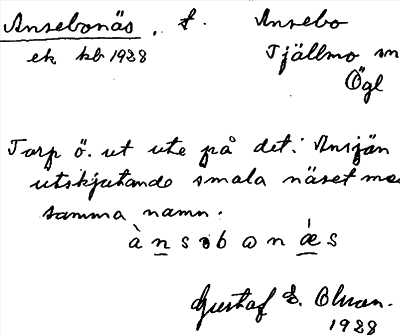 Ansebonäs, f. Ansebo
ek kb 1928 Tjällmo sn
Ögl
Torp ö. ut ute på det i Ansjön
utskjutande smala näset me
samma namn.
à n s ɘ b ω n ǽ s
Gustaf E.
1928